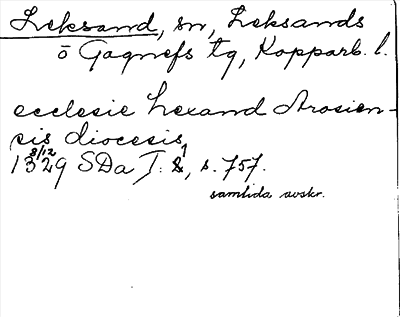 Leksand, sn, Leksands
o Gagnefs tg, Kopparb. l.
ecclesie Lexand Arosien-
sis diocesis
1329 8/12 SDa T: 1, s. 757.
samtida avskr.